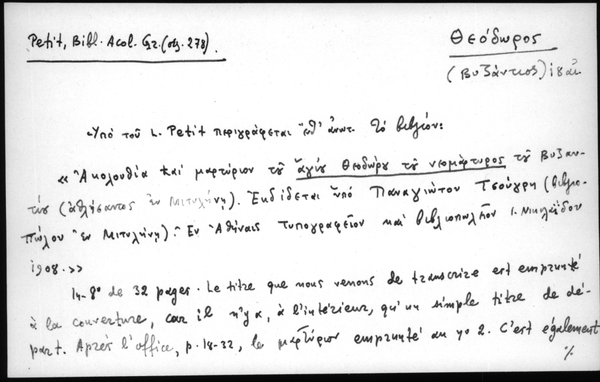 Petit, Bibl. Acol. Gr. (σελ. 278).
Θεόδωρος
(Βυζάντιος) 18 αἰ.
Ὑπὸ τοῦ L. Petit περιγράφεται ἐνθ' ἀνωτ. τὸ βιβλίον:
«Ἀκολουθία καὶ μαρτύριον τοῦ ἁγίου Θεοδώρου τοῦ νεομάρτυρος τοῦ Βυζαν-
τίου (ἀθλήσαντος ἐν Μιτυλήνῃ). Ἐκδίδεται ὑπὸ Παναγιώτου Τσούγρη (βιβλιο-
πώλου ἐν Μιτυλήνῃ). Ἐν Ἀθήναις τυπογραφεῖον καὶ βιβλιοπωλεῖον Ι. Νικολαΐδου
1908.»
In-8° de 32 pages. Le titre que nous venons de transcrire est emprunté
à la couverture, car il n'y a, à l'intérieur, qu'un simple titre de dé-
part. Après l'office, p. 18-32, le μαρτύριον emprunté au nο 2. C'est également
%